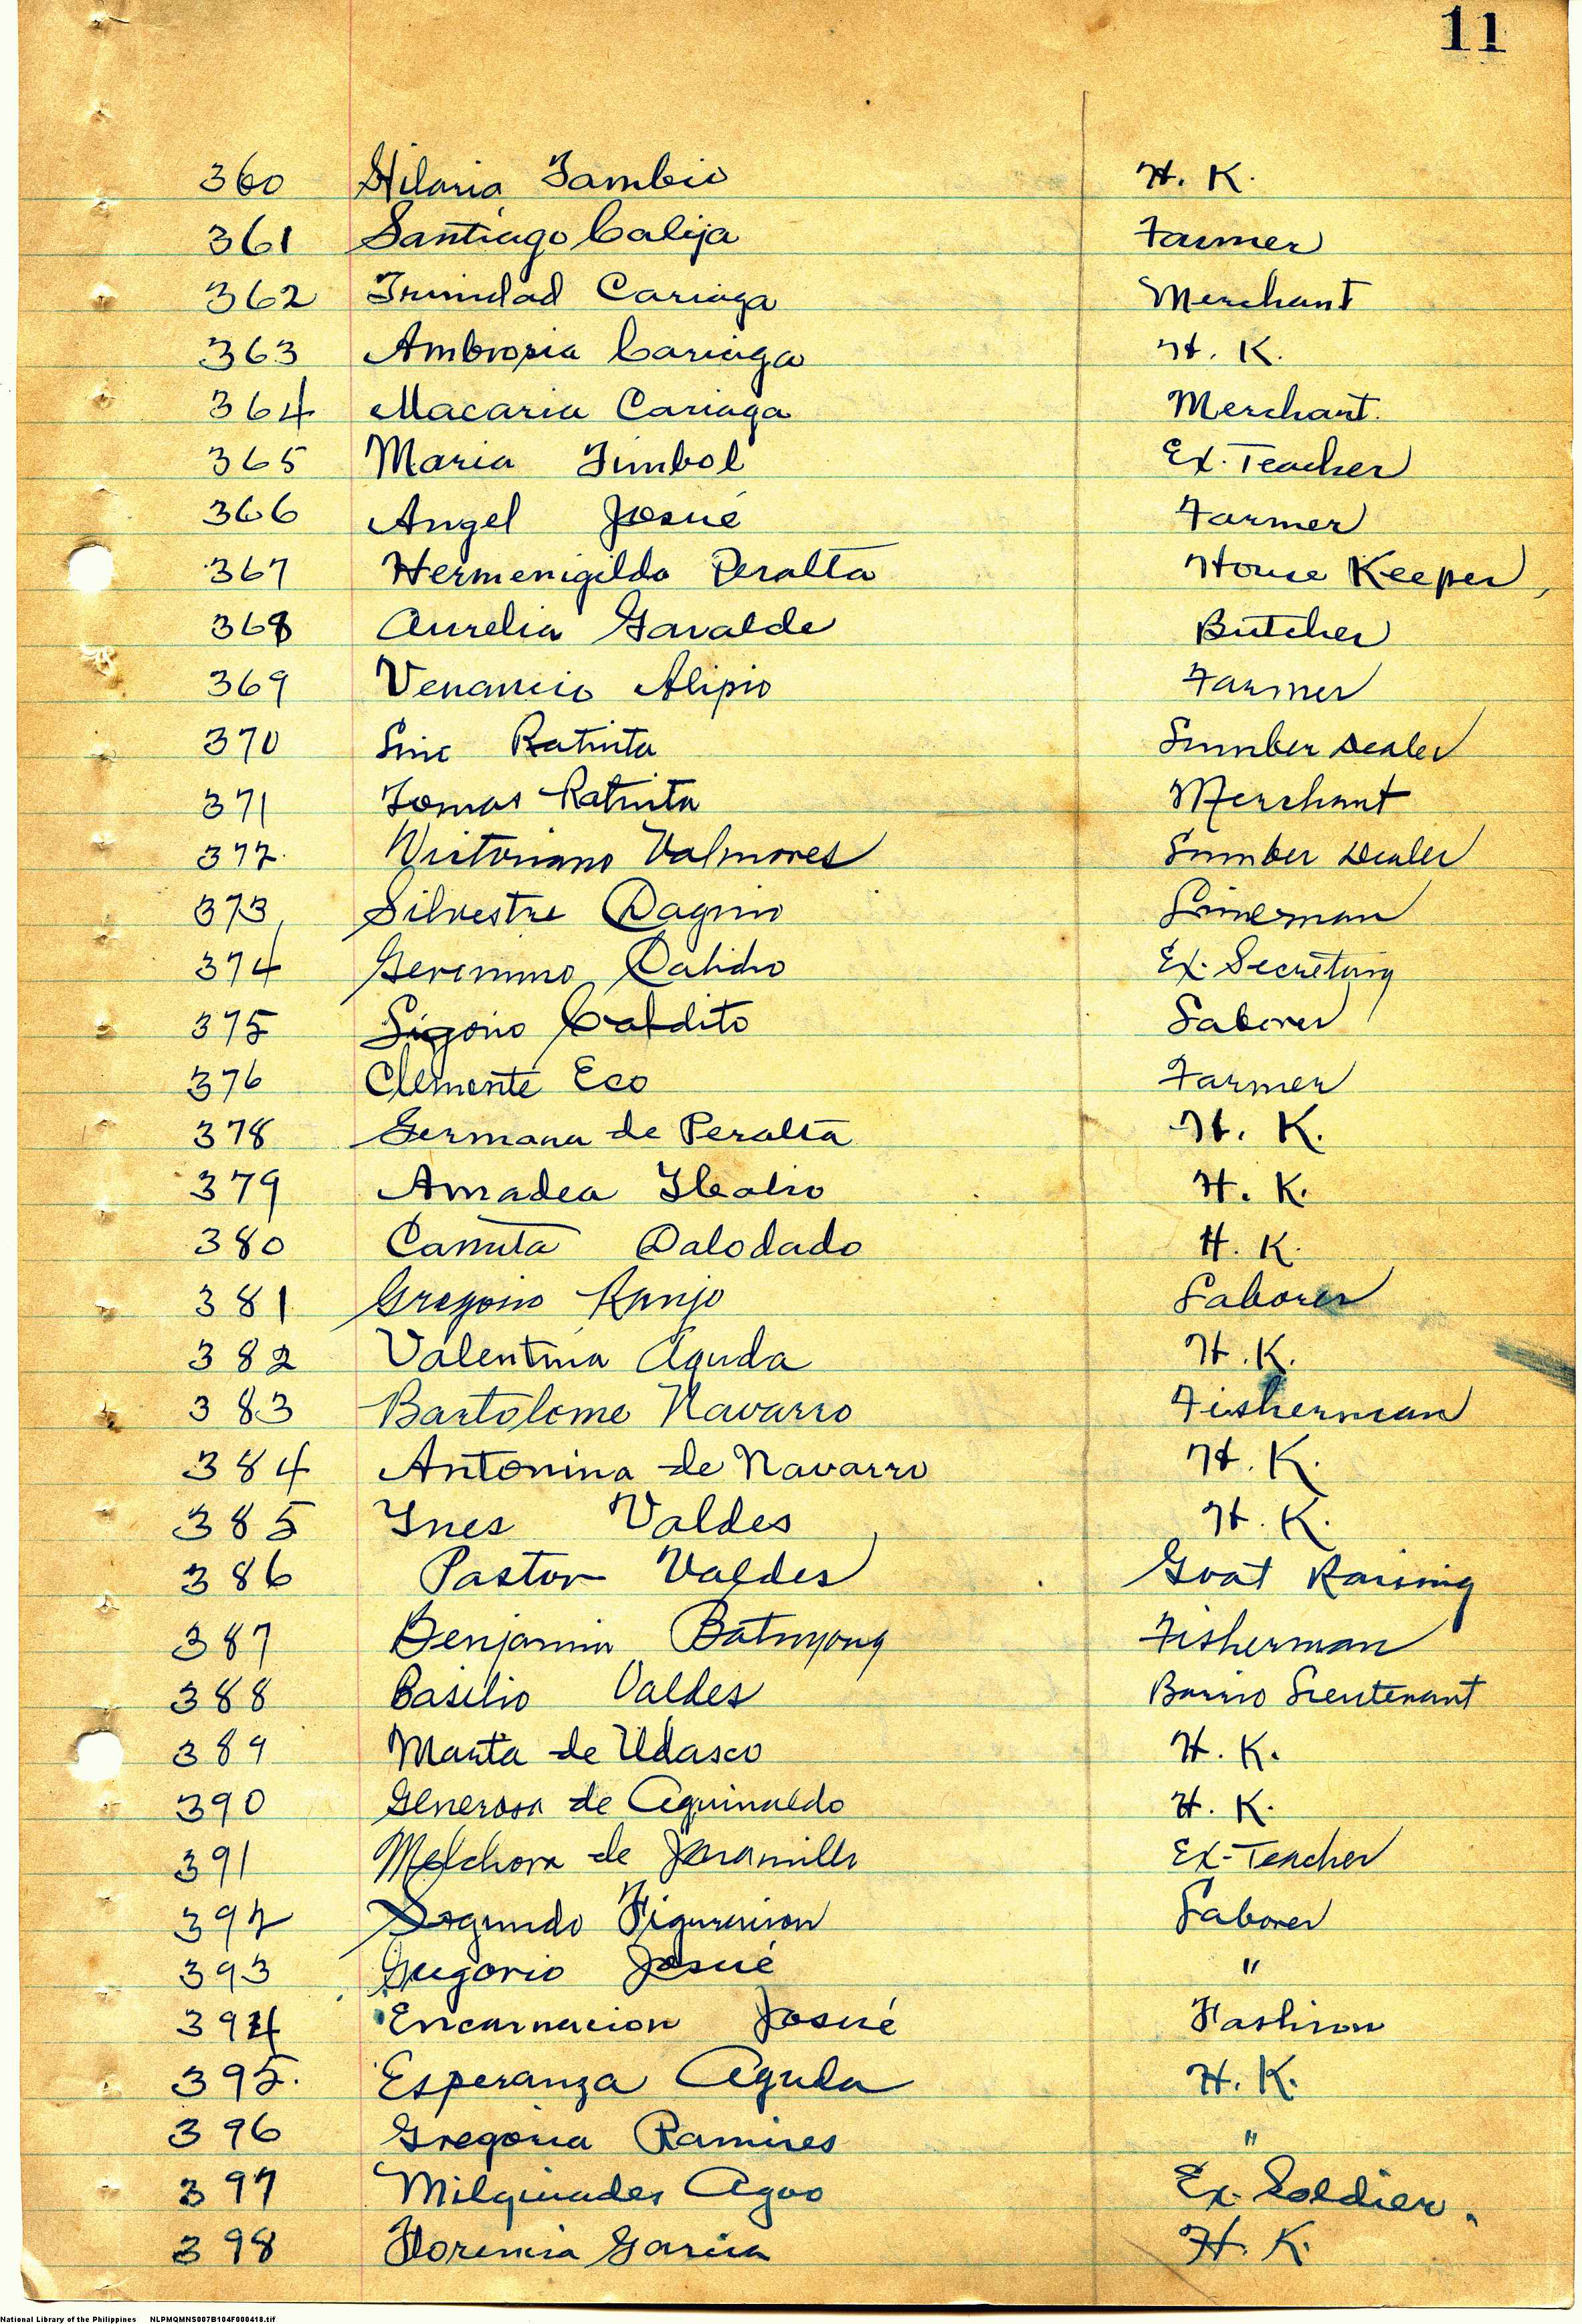 11
360 Hilaria Tambio H. K.
361 Santiago Calija Farmer
362 Trinidad Cariaga Merchant
363 Ambrosia Cariaga H. K.
364 Macaria Cariaga Merchant.
365 Maria Timbol Ex-Teacher
366 Angel Josué Farmer
367 Hermenigildo Peralta House Keeper,
368 Aurelia Gavalde Butcher
369 Venancio Alipio Farmer
370 Ratuita Lumber Dealer
371 Tomas Ratuita Merchant
372. Victoriano Valmores Lumber Dealer
373, Silvestre Dagnio Lineman
374 Geronimo Ex-Secretary
375 Caldito Laborer
376 Clemente Eco Farmer
378 Germana de Peralta H. K.
379 Amadea H. K.
380 Canuta Dalodado H. K.
381 Gregorio Runjo Laborer
382 Valentina Aguda H. K.
383 Bartolome Navarro Fisherman
384 Antonina de Navarro H. K.
385 Ines Valdes H. K.
386 Pastor Valdes Goat Raising
387 Benjamin Batuyong Fisherman
388 Basilio Valdes Barrio Lieutenant
389 Marta de Udasco H. K.
390 Generosa de Aguinaldo H. K.
391 Melchora de Jaramillo Ex-Teacher
392 Segundo Figuracion Laborer
393 Gregorio Josué "
394 Encarnacion Josué Fashion
395. Esperanza Aguda H. K.
396 Gregoria Ramires "
397 Milquiades Agoo Ex-Soldier.
398 Florencia Garcia H. K.
National Library of the Philippines NLPMQMNS007B104F000418.tif